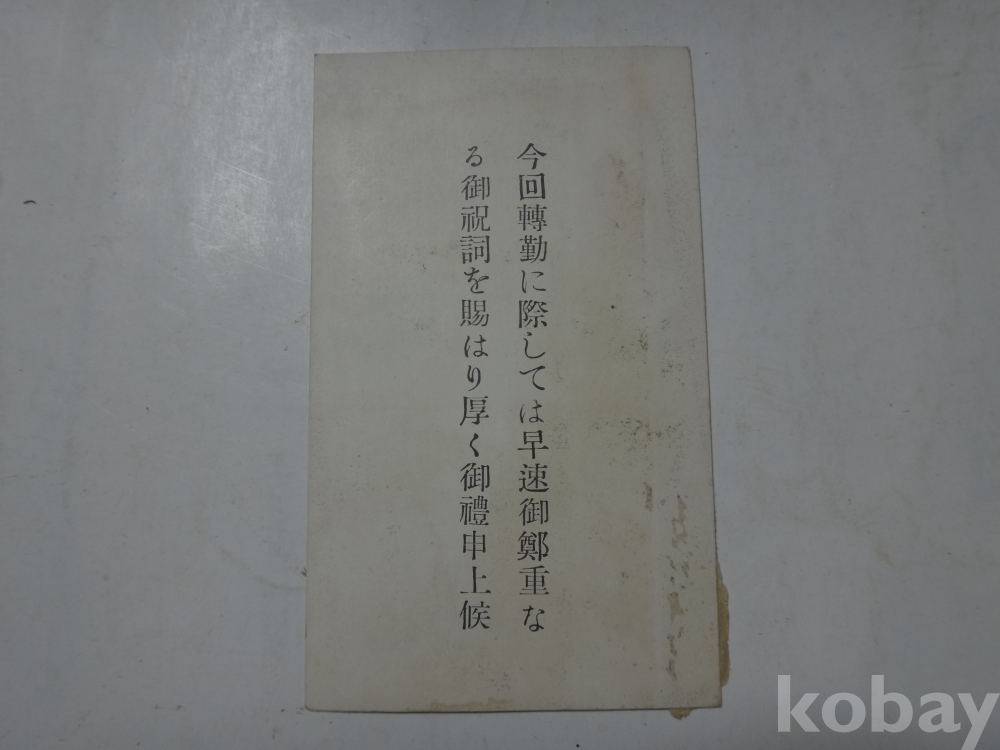 今回轉勤に際しては早速御鄭重な
る御祝詞を賜はり厚く御禮申上候
kobay